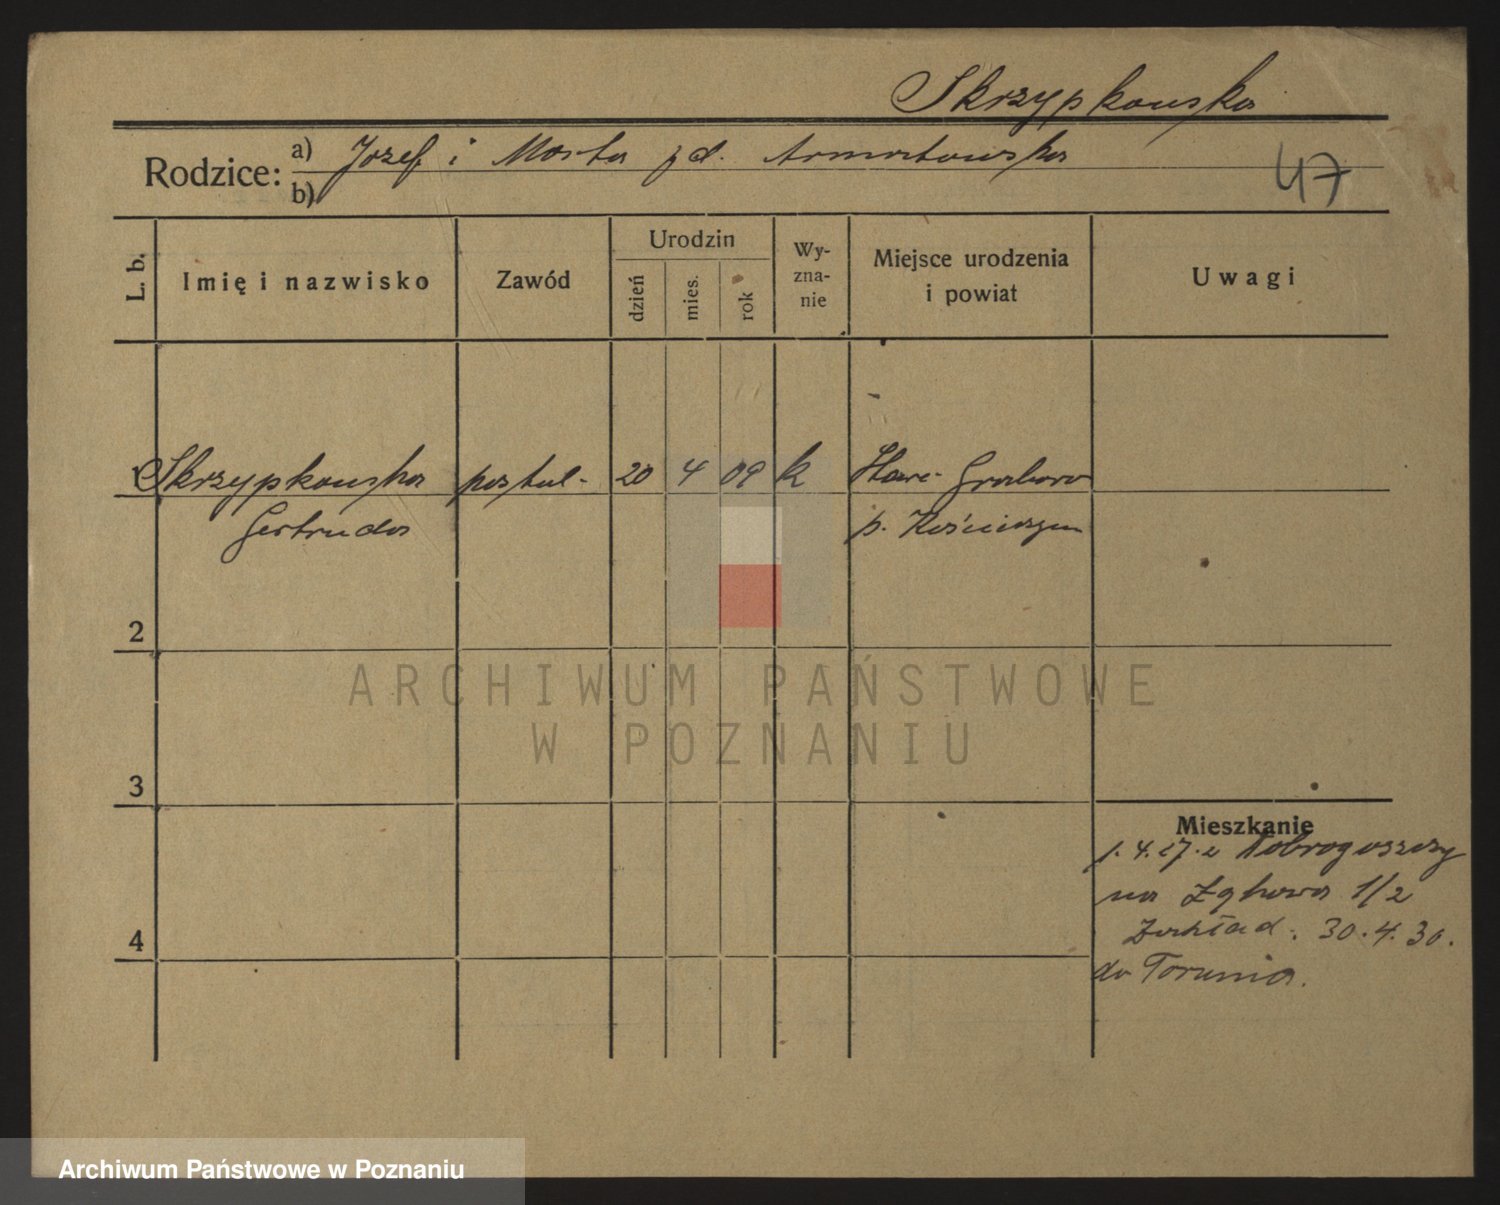 Skrzypkowska
Rodzice: a) Józef i Marta zd. Armatowska
b)
47
L. b.
Imię i nazwisko
Zawód
Urodzin
dzień
mies.
rok
Wy-
zna-
nie
Miejsce urodzenia
i powiat
Uwagi
1 Skrzypkowska postul- 20 4 09 k Stare Grabowo
Gertruda p. Kościerzyna
2
3
4
Mieszkanie
1. 4. 27. z Dobrogoszczy
na 1/2
Zakład. 30. 4. 30.
do Torunia.
ARCHIWUM PAŃSTWOWE
W POZNANIU
Archiwum Państwowe w Poznaniu